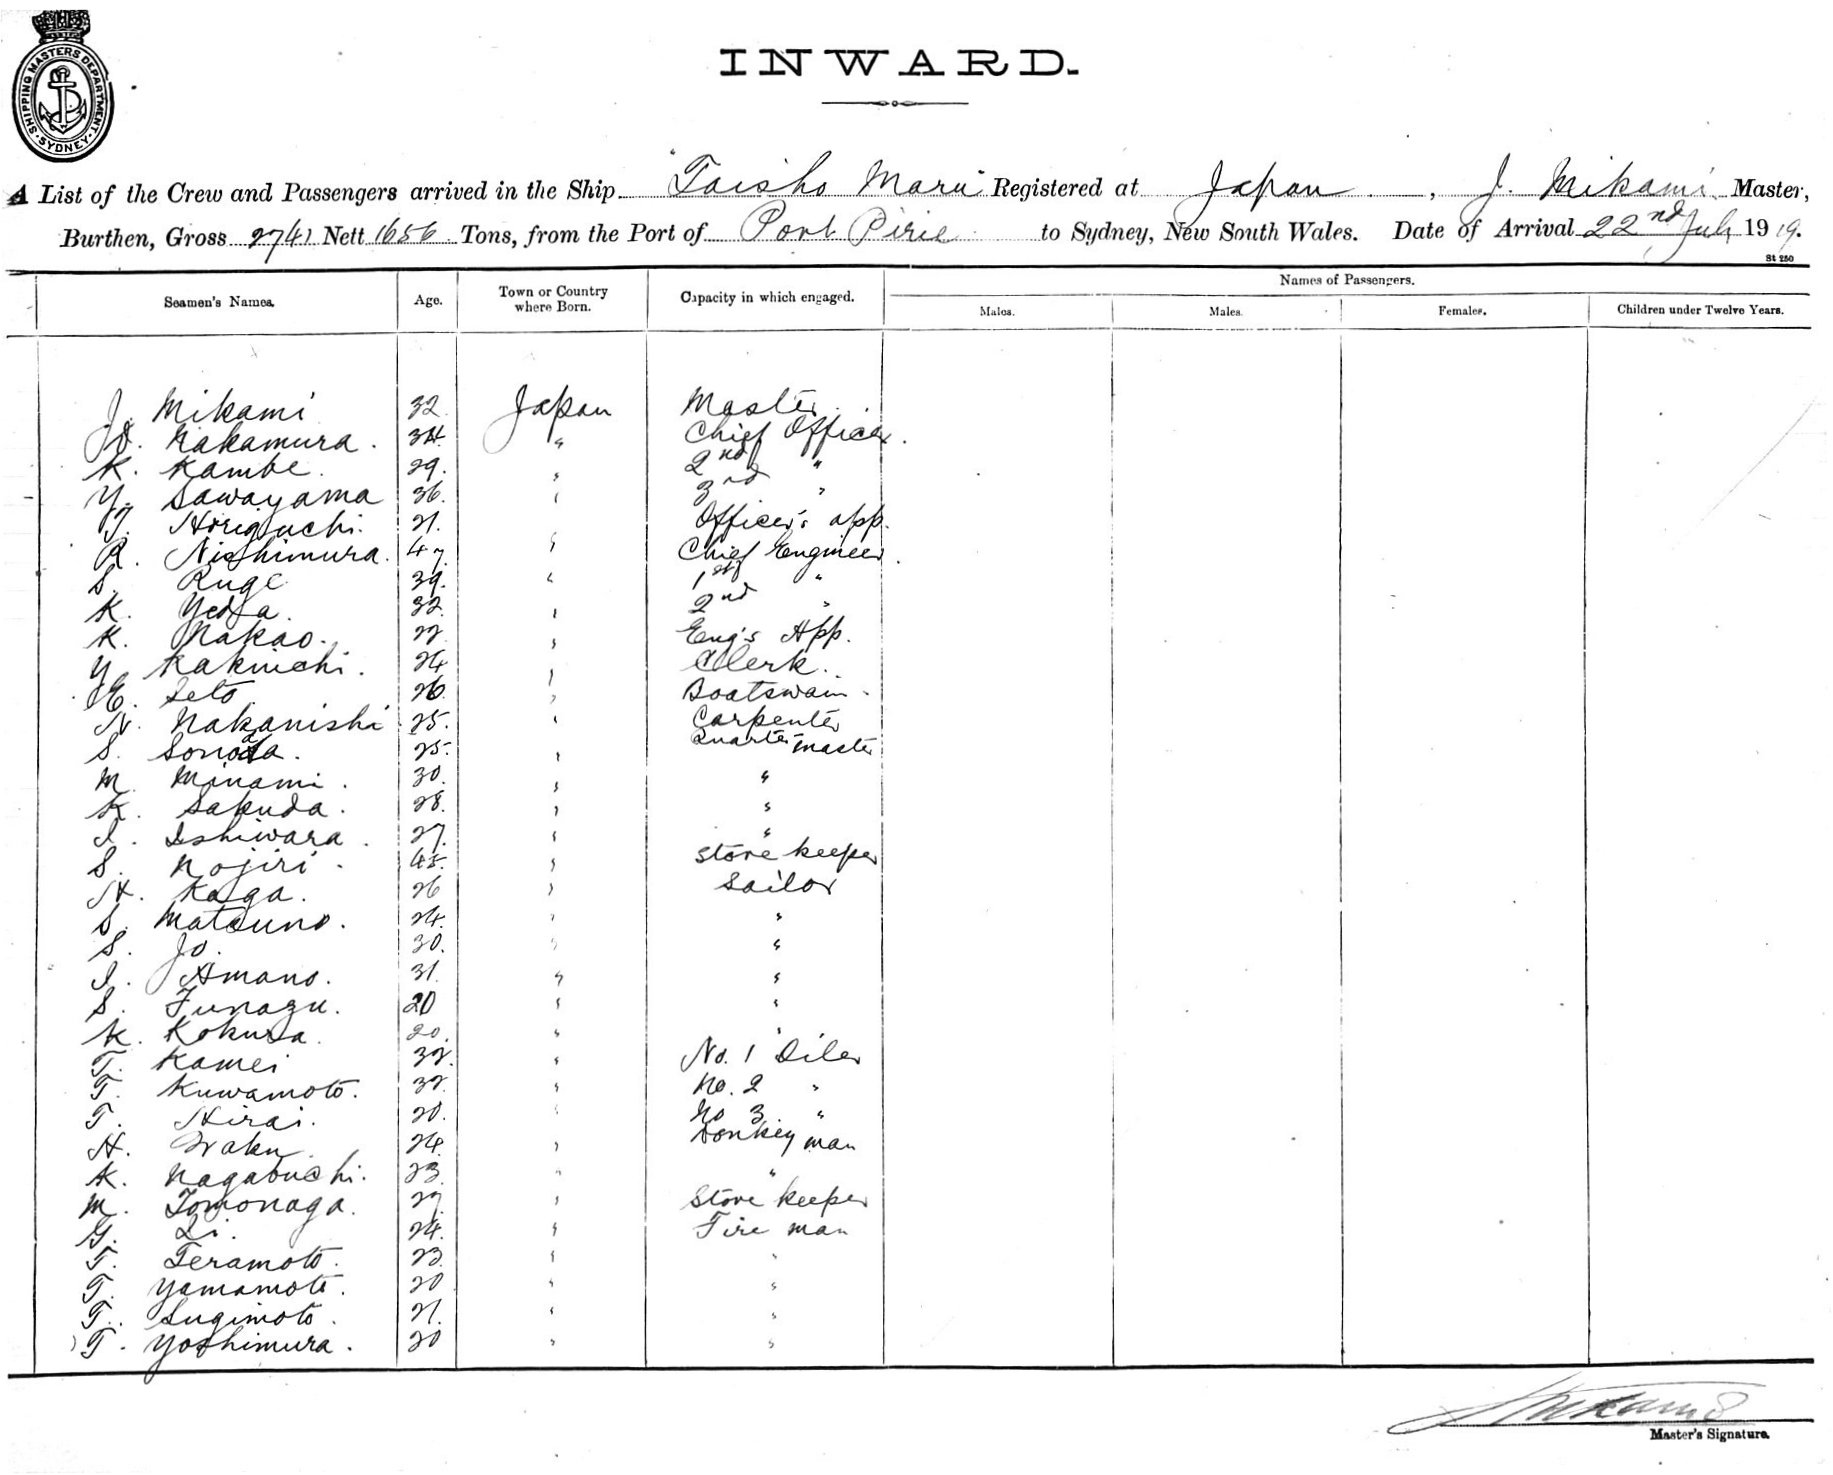 SHIPPING MASTERS DEPARTMENT
SYDNEY
INWARD.
A List of the Crew and Passengers arrived in the Ship "Taisho Maru" Registered at Japan, J. Mikami Master,
Burthen, Gross 2741 Nett 1656 Tons, from the Port of Port Pirie to Sydney, New South Wales. Date of Arrival 22nd July 1919.
St 250
Seamen's Names. Age. Town or Country where Born. Capacity in which engaged. Names of Passengers.
Males. Males. Females. Children under Twelve Years.
J. Mikami 32 Japan Master
Nakamura. 34. " Chief Officer.
K. Kambe. 29. " 2nd "
Y. Sawayama 36. " 3rd "
T. Horiguchi. 21. " Officer's app.
R. Nishimura. 47. " Chief Engineer.
S. Ruge 39. " 1st "
K. 32. " 2nd "
K. Nakao. 22. " Eng's App.
Y. Kakiuchi. 24 " Clerk.
E. Seto 26. " Boatswain.
N. Nakanishi 25. " Carpenter
S. Sonoda. 25. " Quarter master
M. Minami. 30. " "
K. Sakuda. 28. " "
I. Ishiwara. 27. " "
S. Nojiri. 45. " Store keeper
H. Kaga. 26 " Sailor
S. Matsuno. 24. " "
S. Jo. 30. " "
I. Amano. 31. " "
S. Funazu. 20 " "
K. Kokura. 20. " "
T. Kamei 32. " No. 1 Oiler
T. Kuwamoto. 32. " No. 2 "
T. Hirai. 20. " No 3. "
H. Waku. 24. " Donkey man
K. Nagabuchi. 23. " "
M. Tomonaga. 27. " Store keeper
G. 24. " Fire man
T. Teramoto. 23. " "
T. Yamamoto. 20 " "
T. Sugimoto. 21. " "
T. Yoshimura. 20 " "
J Mikami
Master's Signature.